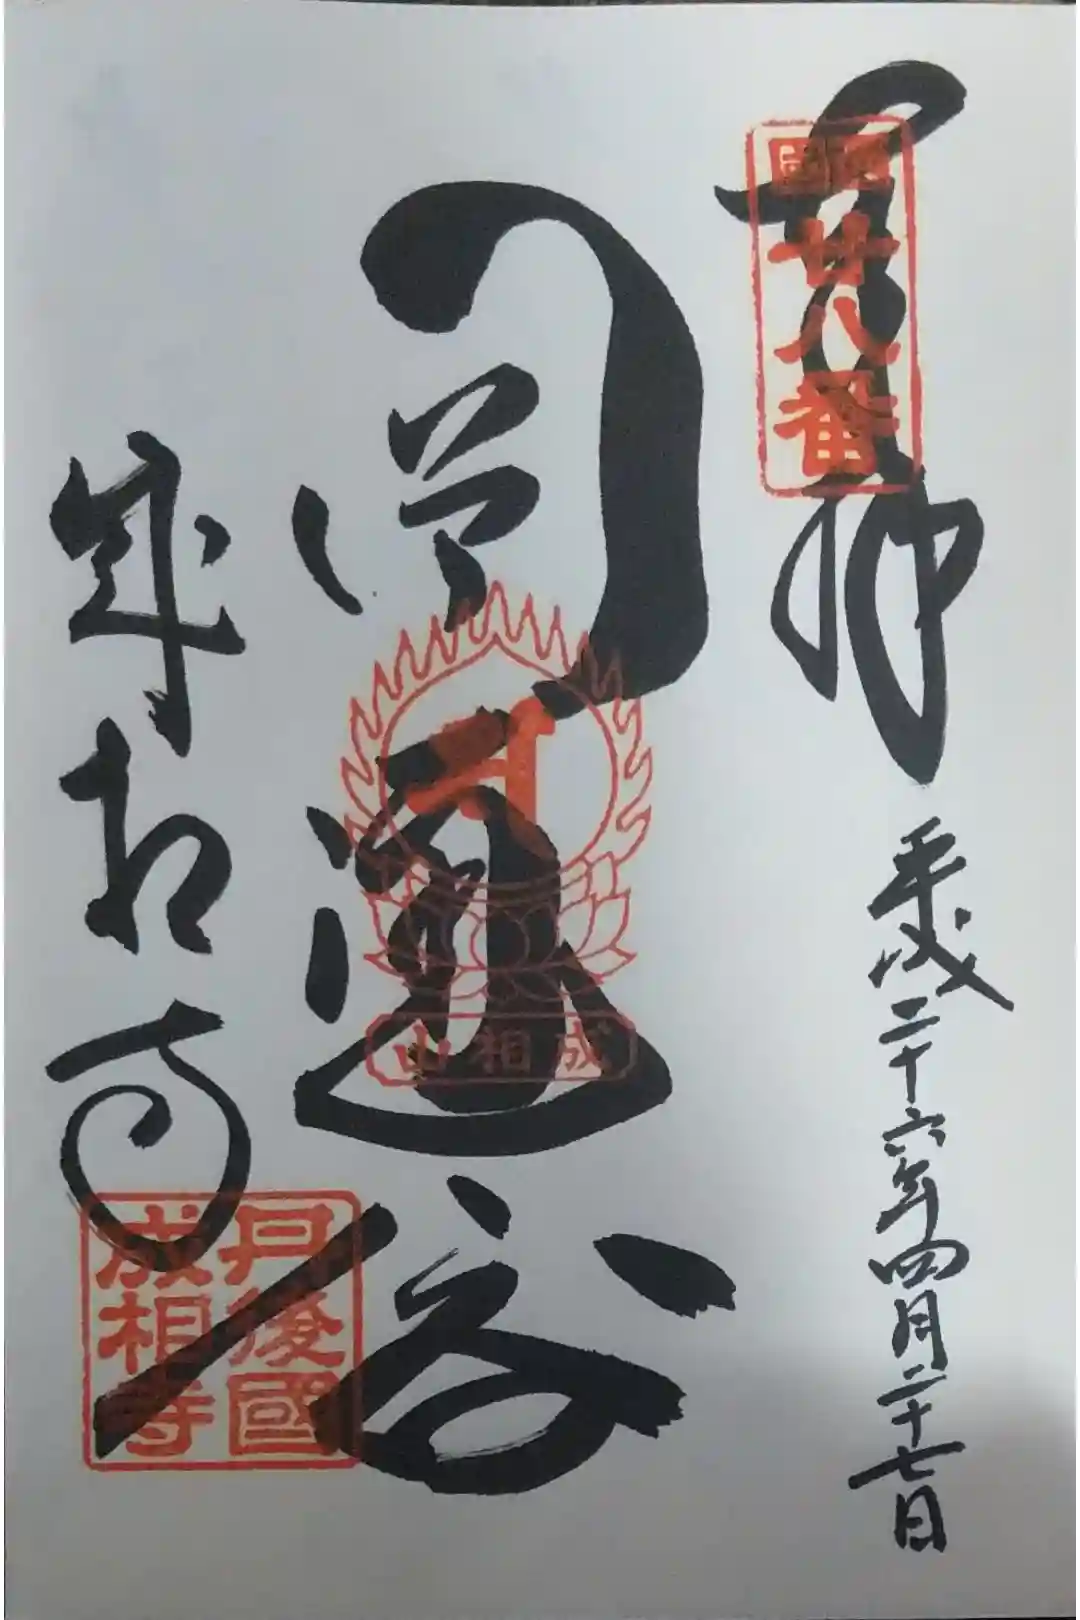 奉拝
平成二十六年四月二十七日
西國
廿八番
圓通殿
成相山
成相寺
丹後國
成相寺